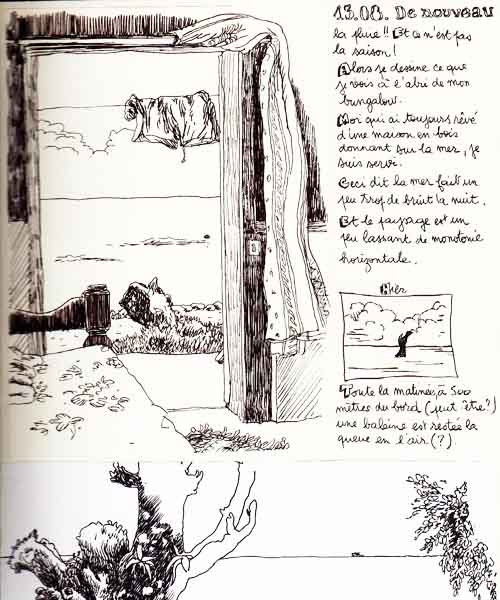 13.08. De nouveau
la pluie!! Et ce n'est pas
la saison!
Alors je dessine ce que
je vois à l'abri de mon
bungalow.
Moi qui ai toujours rêvé
d'une maison en bois
donnant sur la mer, je
suis servi.
Ceci dit la mer fait un
peu trop de bruit la nuit.
Et le paysage est un
peu lassant de monotonie
horizontale.
Hier
Toute la matinée, à 500
mètres du bord (peut être?)
une baleine est restée la
queue en l'air (?)